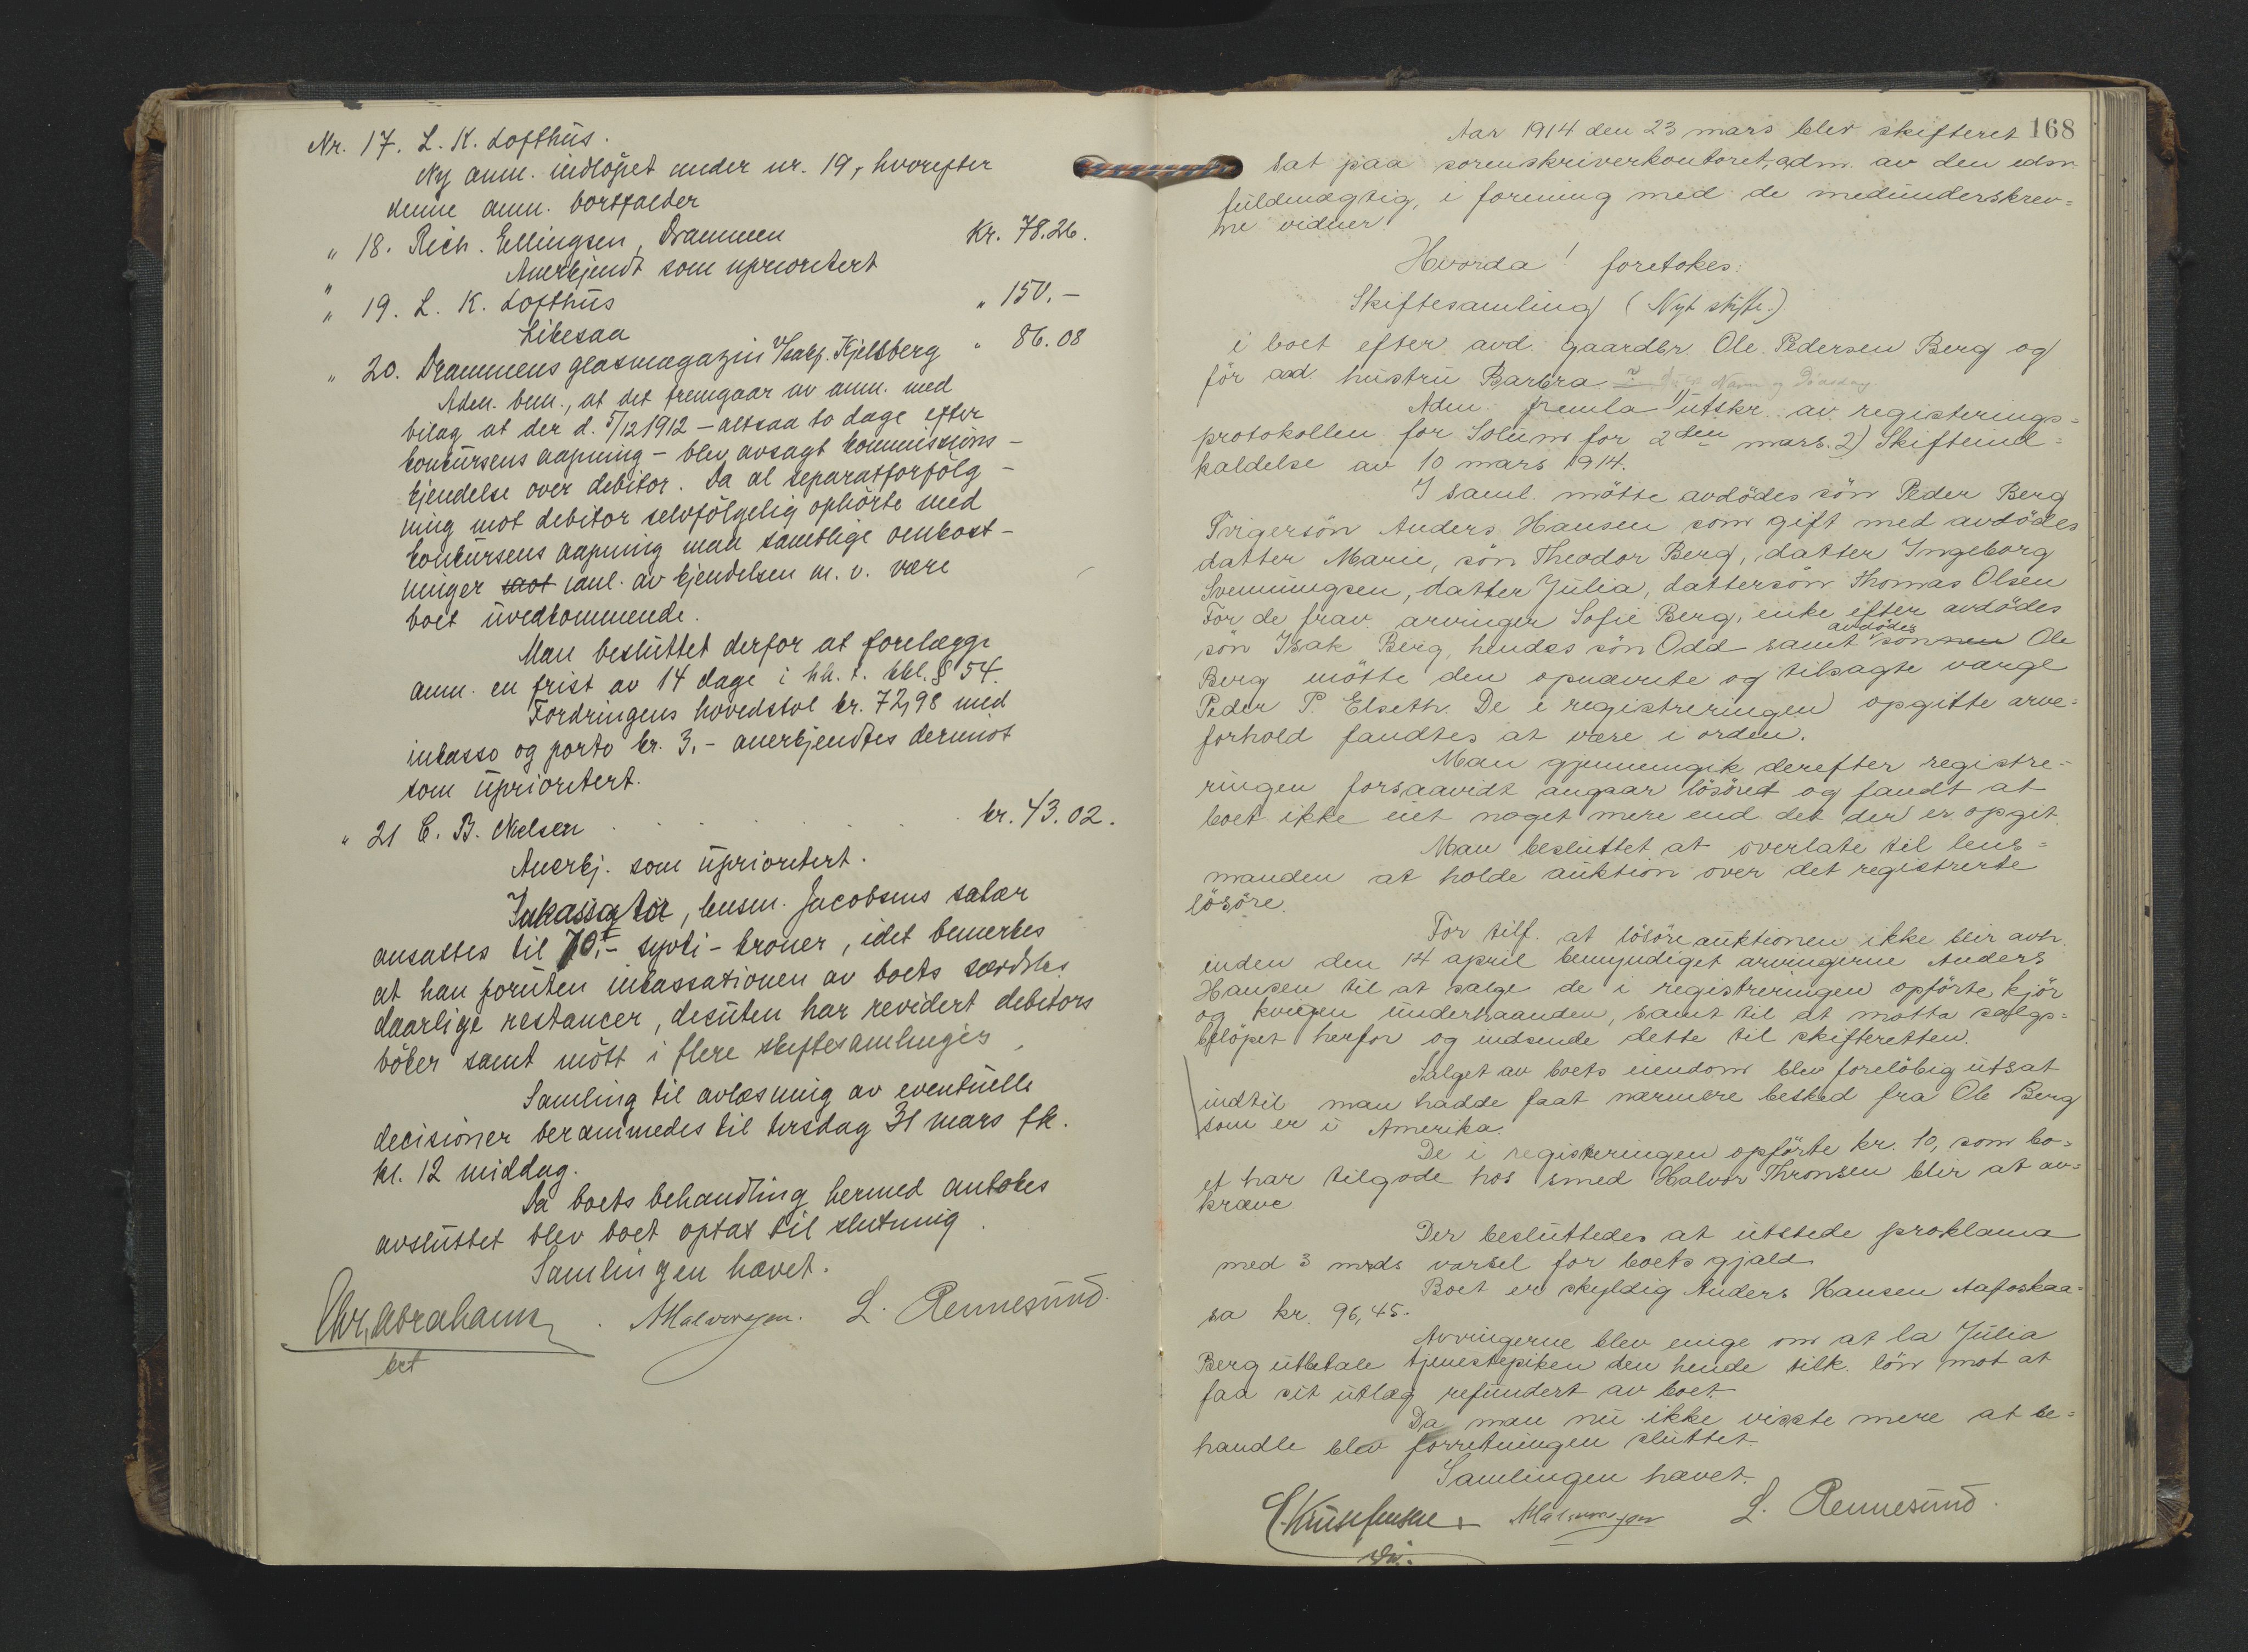 Nr. 17. L. K. Lofthus.
Ny anm. indløpet under nr. 19, hvorefter
denne anm. bortfalder
" 18. Rich. Ellingsen, Drammen Kr. 78.26.
" Anerkjendt som uprioritert
" 19. L. K. Lofthus " 150.-
Likesaa
" 20. Drammens glasmagazin v/sakf. Kjelsberg " 86.08
Adm. bem., at det fremgaar av anm. med
bilag at der d. 5/12 1912 – altsaa to dage efter
konkursens aapning – blev avsagt kommissions-
kjendelse over debitor. Da al separatforfølg-
ning mot debitor selvfølgelig ophørte med
konkursens aapning maa samtlige omkost-
ninger anl. av kjendelsen m. v. være
boet uvedkommende.
Man besluttet derfor at forelægge
anm. en frist av 14 dage i hh. t. kkl. § 54.
Fordringens hovedstol kr. 72,98 med
inkasso og porto kr. 3,- anerkjendtes derimot
som uprioritert.
" 21 C. B. Nielsen kr. 43.02.
Anerkj. som uprioritert.
Inkassator, lensm. Jacobsens salær
ansattes til 70.- sytti - kroner, idet bemerkes
at han foruten inkassationen av boets særdeles
daarlige restancer, desuten har revidert debitors
bøker samt møtt i flere skiftesamlinger,
Samling til avlæsning av eventuelle
decisioner berammedes til tirsdag 31 mars fk.
kl. 12 middag.
Da boets behandling hermed antokes
avsluttet blev boet optat til slutning.
Samlingen hævet.
Chr. Abrahams. Halvorsen. L. Rennesund.
bet
168
Aar 1914 den 23 mars blev skifteret
sat paa sorenskriverkontoret, adm. av den edsv.
fuldmægtig, i forening med de medunderskrev=
ne vidner.
Hvorda! foretokes:
Skiftesamling (Nyt skifte.)
i boet efter avd. gaardbr. Ole Pedersen Berg og
før avd. hustru Barbra
Adm. fremla 1) utskr. av registerings=
protokollen for Solum for 2den mars. 2) Skifteind=
kaldelse av 10 mars 1914.
I saml. møtte avdødes søn Peder Berg
Svigersøn Anders Hansen som gift med avdødes
datter Marie, søn Theodor Berg, datter Ingeborg
Svenningsen, datter Julia, dattersøn Thomas Olsen
For de frav. arvinger Sofie Berg, enke efter avdødes
søn Isak Berg, hendes søn Odd samt avdødes sønnen Ole
Berg møtte den opnævnte og tilsagte værge
Peder P. Elseth. De i registreringen opgitte arve=
forhold fandtes at være i orden.
Man gjennemgik derefter registre-
ringen forsaavidt angaar løsøret og fandt at
boet ikke eiet noget mere end det der er opgit.
Man besluttet at overlate til lens=
manden at holde auktion over det registrerte
løsøre.
For tilf. at løsøreauktionen ikke blir avh.
inden den 14 april bemyndiget arvingerne Anders
Hansen til at sælge de i registreringen opførte kjør
og kvigen underhaanden, samt til at motta salgs=
beløpet herfor og indsende dette til skifteretten.
Salget av boets eiendom blev foreløbig utsat
indtil man hadde faat nærmere besked fra Ole Berg
som er i Amerika.
De i registeringen opførte kr. 10, som bo=
et har tilgode hos smed Halvor Thronsen blir at av=
kræve
Der besluttedes at utstede proklama
med 3 mnds varsel for boets gjæld.
Boet er skyldig Anders Hansen Aafoskaa=
sa kr. 96,45.
Arvingerne blev enige om at la Julia
Berg utbetale tjenestepiken den hende tilk. løn mot at
faa sit utlæg refundert av boet.
Da man nu ikke visste mere at be=
handle blev forretningen sluttet.
Samlingen hævet.
Halvorsen L. Rennesund.